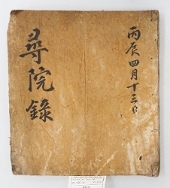 丙辰四月十三日
尋院錄